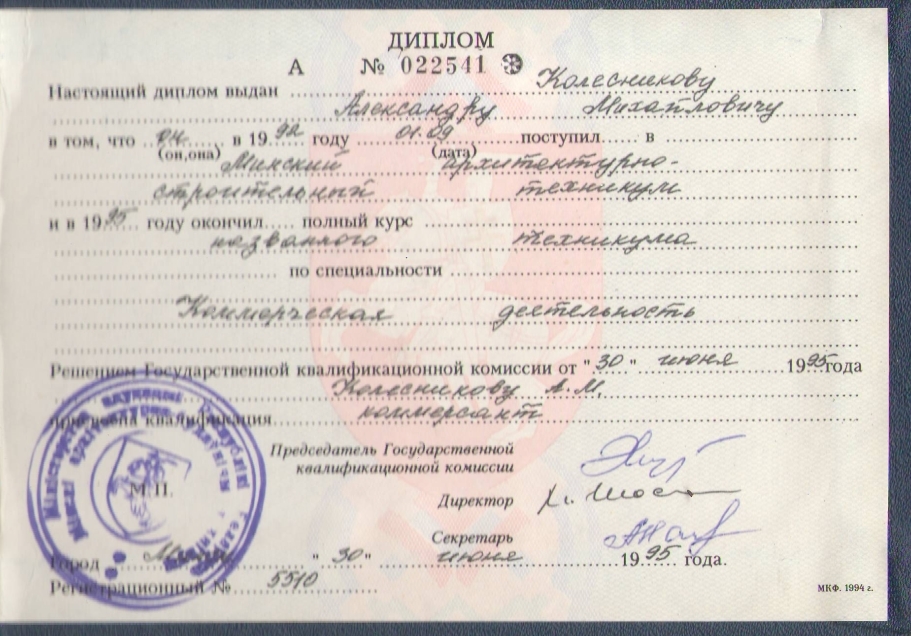 ДИПЛОМ
А № 022541
Настоящий диплом выдан Колесникову
Александру Михайловичу
в том, что он в 1992 году 01.09 поступил в
(он,она) (дата)
Минский архитектурно-
строительный техникум
и в 1995 году окончил полный курс
названного техникума
по специальности
Коммерческая деятельность
Решением Государственной квалификационной комиссии от "30" июня 1995 года
Колесникову А.М.
присвоена квалификация коммерсант
Председатель Государственной
квалификационной комиссии
М.П.
Директор
Секретарь
Город Минск "30" июня 1995 года.
Регистрационный № 5510
МКФ. 1994 г.